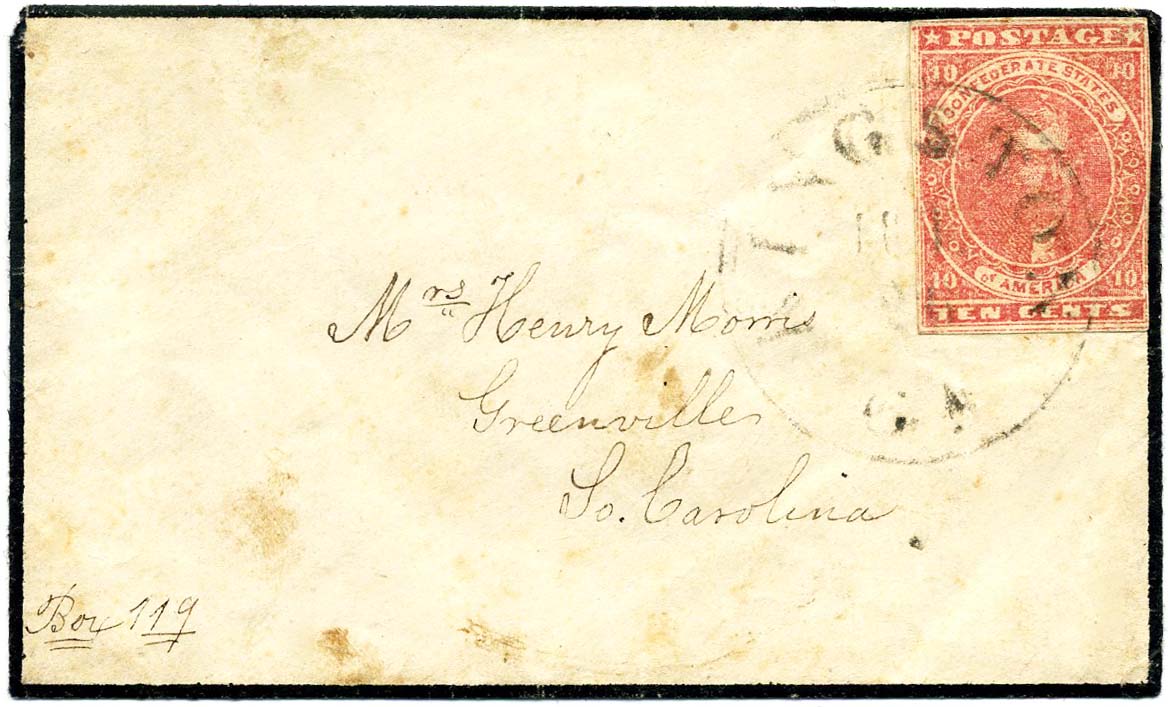 ★POSTAGE★
10 10
CONFEDERATE STATES
of AMERICA
10 10
TEN CENTS
GA
Mrs Henry Morris
Greenville
So. Carolina
Box 119